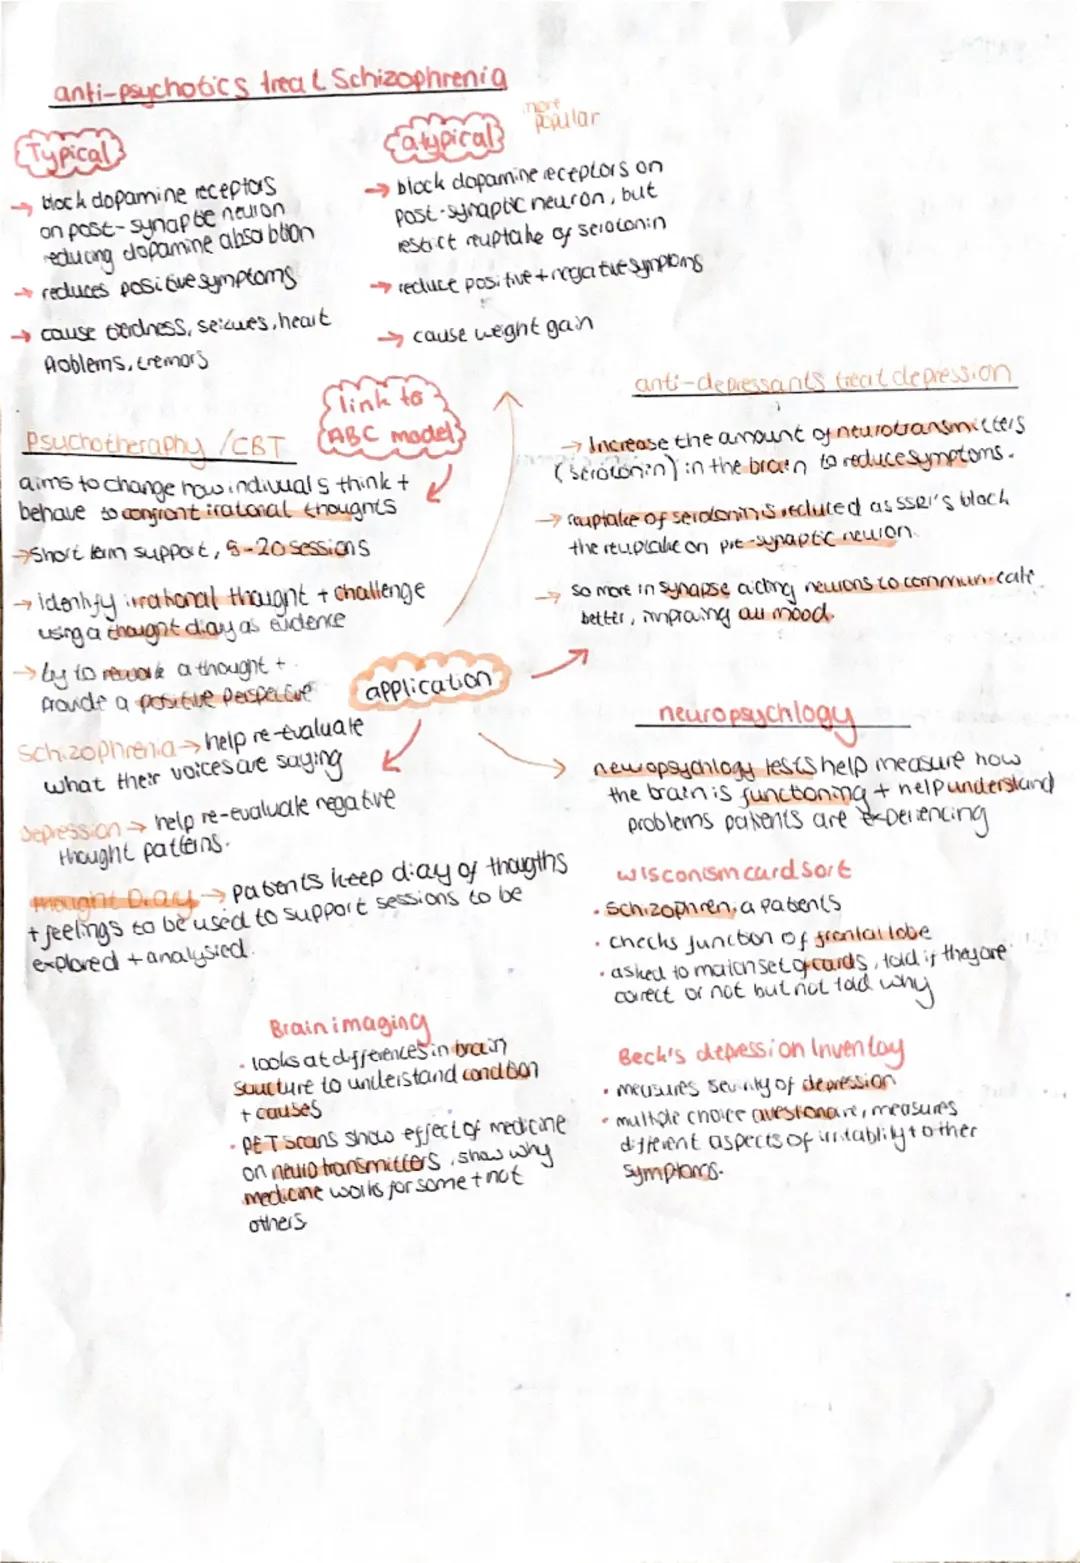 anti-psychotics treat Schizophrenia
Typical
→ block dopamine receptors
on post-synaptic neuron
reducing dopamine absorbtion
→ reduces positive symptoms
→ cause tierdness, seizues, heart
Problems, tremors
atypical
more
popular
→ block dopamine receptors on
post-synaptic neuron, but
restrict reuptake of serotonin
→ reduce positive + negative symptoms
→ cause weight gain
link to
ABC model
Psychotheraphy /CBT
aims to change how indiviual s think +
behave to confront irational thoughts
→ Short term support, 5-20 sessions
→ identify irrational thought + challenge
using a thought diary as evidence
→ try to rework a thought +
Provide a positive perspective
Schizophrenia → help re-evaluate
what their voices are saying
Depression → help re-evaluate negative
thought patterns.
Thought Diary → patients keep diary of thougths
+ feelings to be used to support sessions to be
explored + analysied.
application
anti-depressants treat depression
→ Increase the amount of neurotransmitters
(serotonin) in the brain to reduce symptoms.
→ reuptake of serotonin is reduced as SSRI's block
the reuptake on pre-synaptic neuron.
→ so more in synapse aiding neurons to communicate
better, improving our mood.
neuropsychlogy
neuropsychlogy tests help measure how
the brain is functioning + help understand
problems patients are experiencing
wisconism card sort
• Schizophrenia Patients
• checks function of frontal lobe
• asked to match set of cards, told if they are
correct or not but not told why
Beck's depression Inventory
• measures severity of depression
• multiple choice questionare, measures
different aspects of irritablity + other
symptoms.
Brain imaging
• looks at differences in brain
structure to understand condition
+ causes
• PET Scans show effect of medicine
on neurotransmitters, show why
medicine works for some + not
others